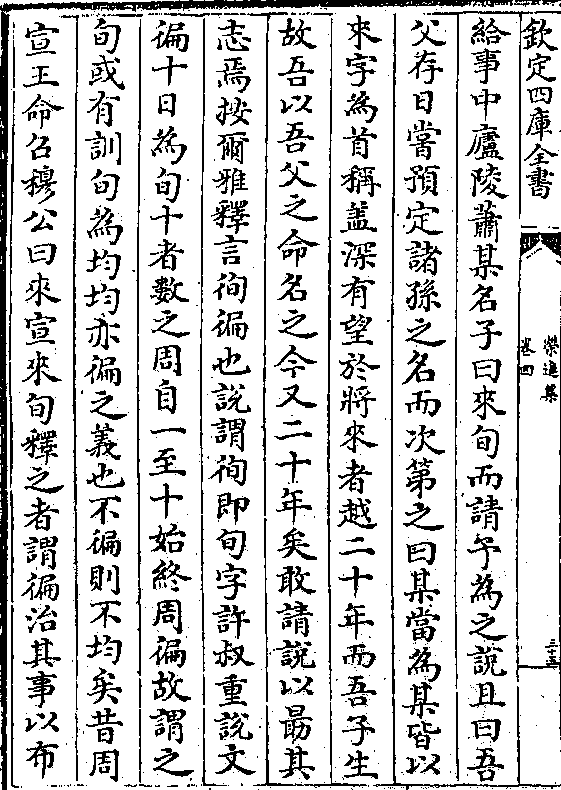 欽定四庫全書
榮進集
卷四
三十五
給事中廬陵蕭某名子曰來旬而請予為之說且曰吾
父存日嘗預定諸孫之名而次第之曰某當為某皆以
來字為首稱盖深有望於將來者越二十年而吾子生
故吾以吾父之命名之今又二十年矣敢請說以勗其
志焉按爾雅釋言徇徧也說謂徇即旬字許叔重說文
徧十日為旬十者數之周自一至十始終周徧故謂之
旬或有訓旬為均均亦徧之義也不徧則不均矣昔周
宣王命召穆公曰來宣來旬釋之者謂徧治其事以布